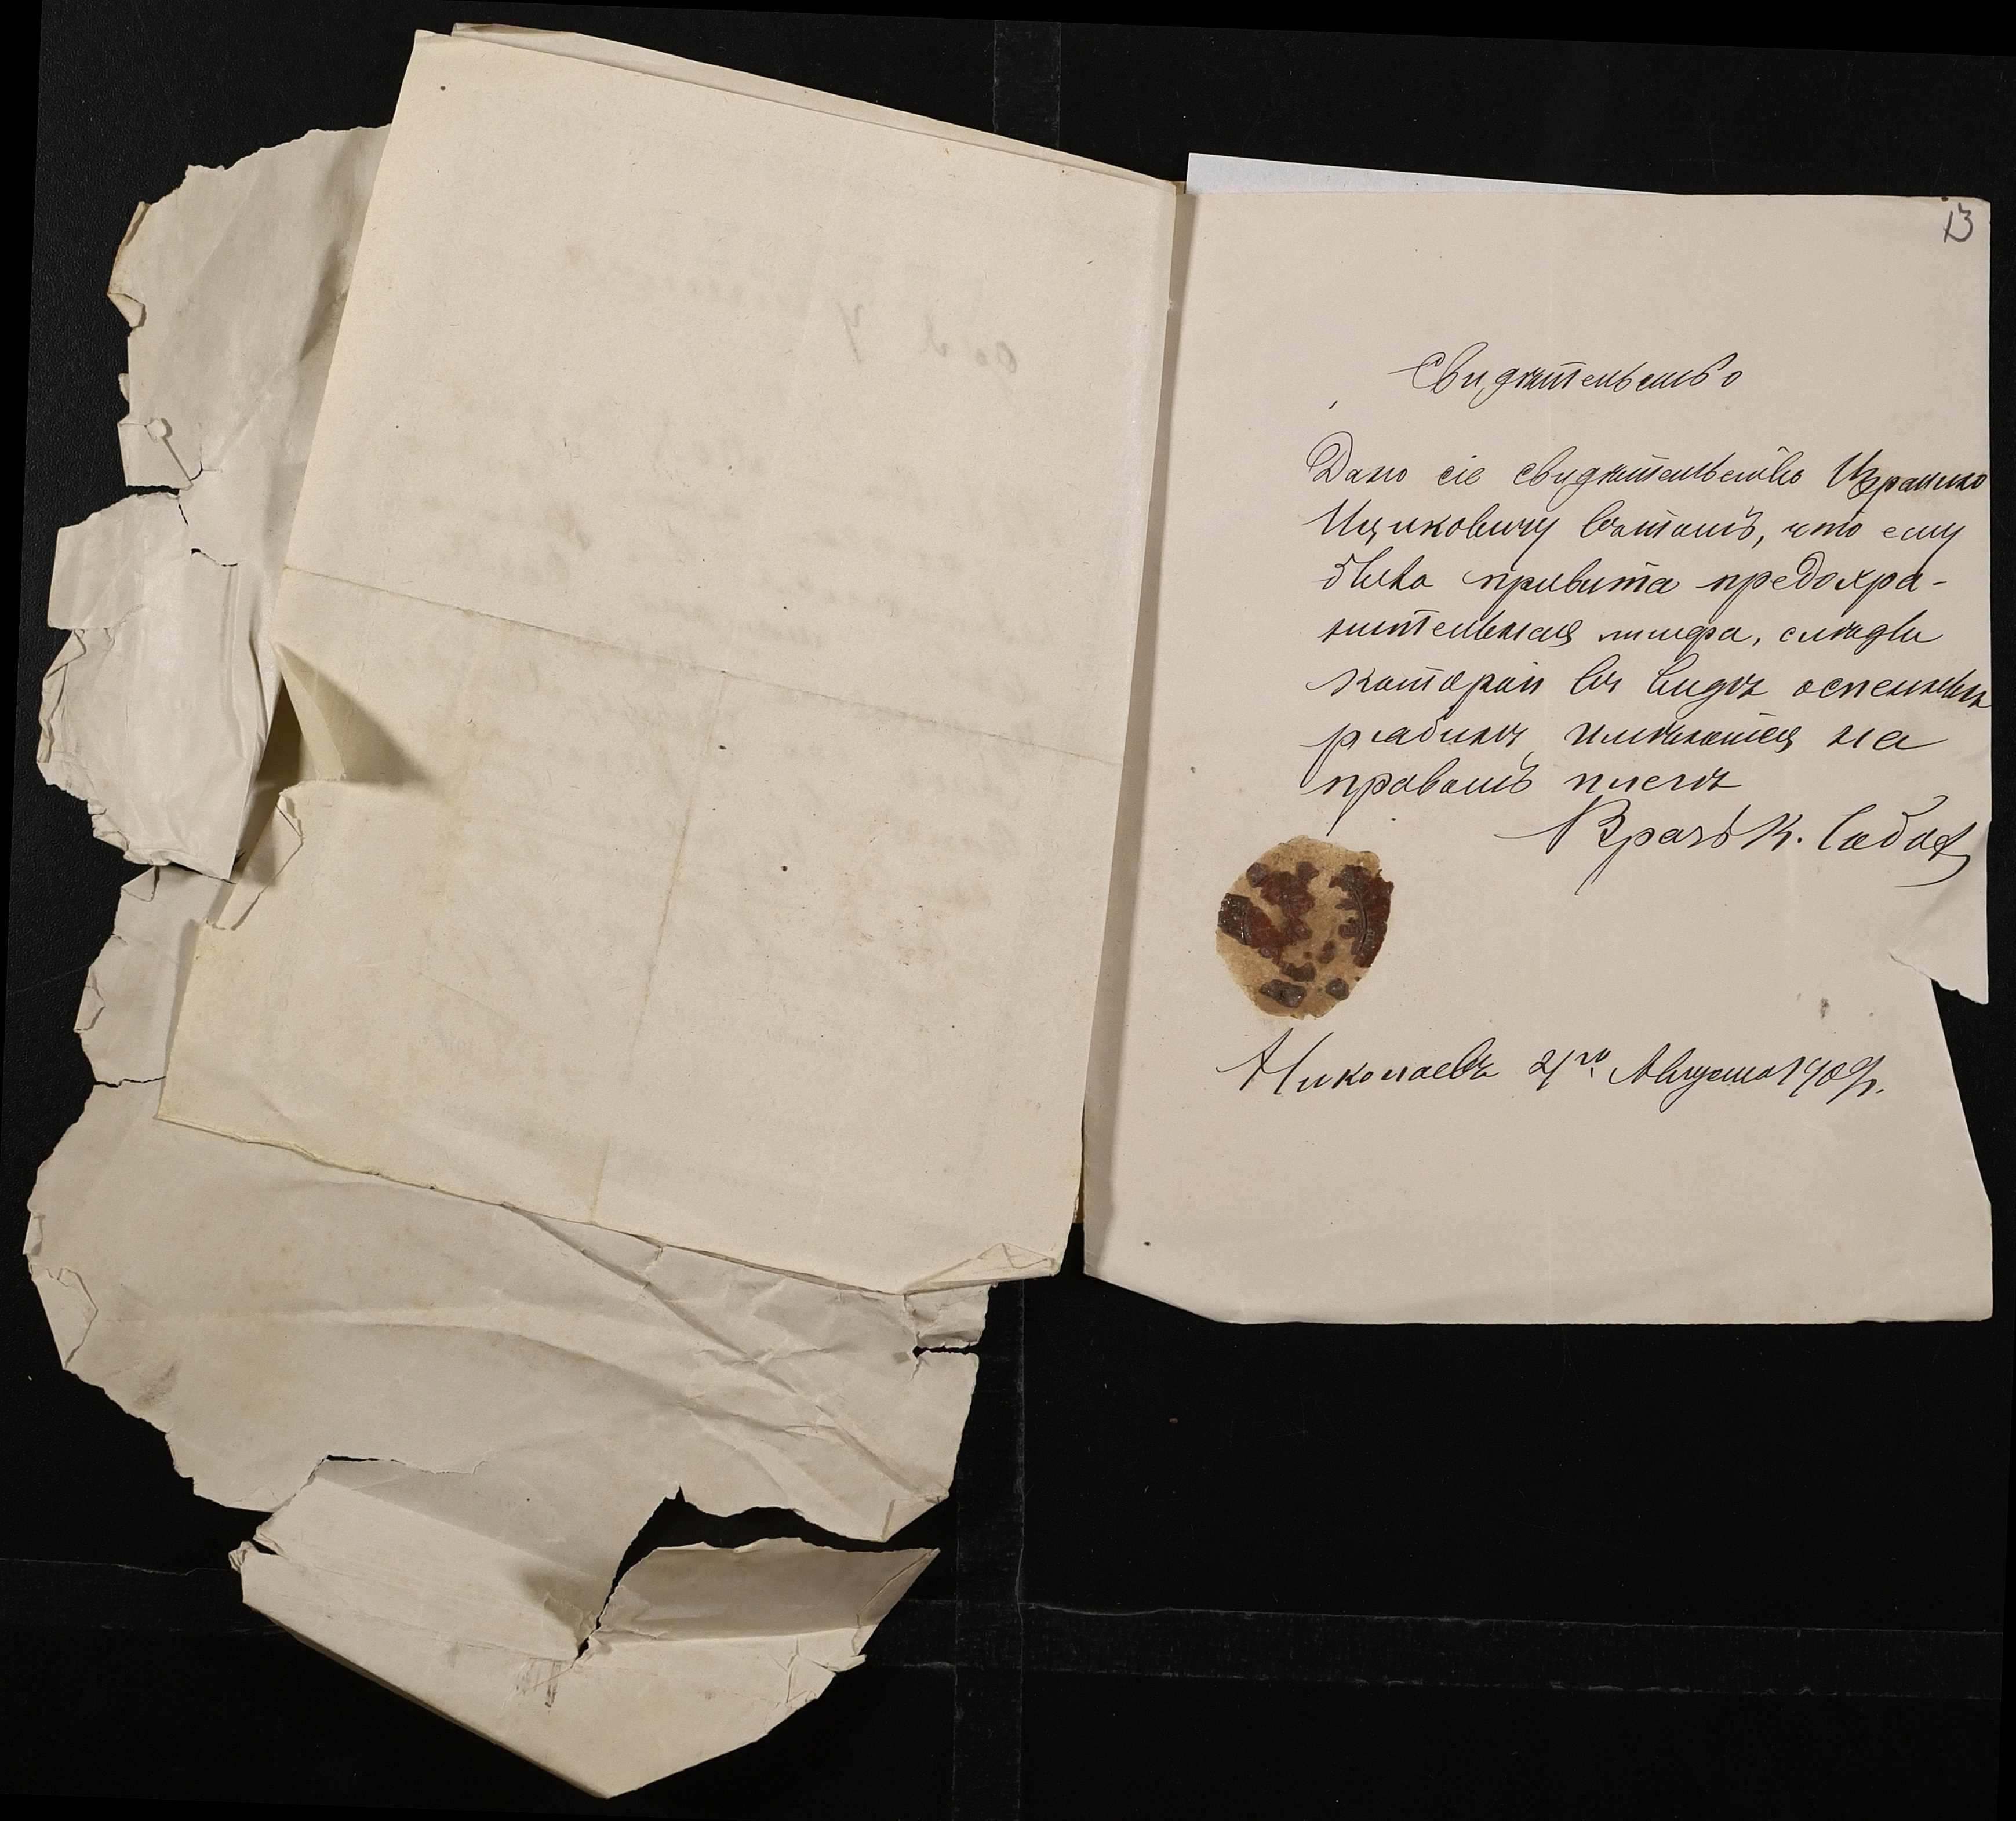 13
Свидѣтельство
Дано сіе свидѣтельство Израилю
Ицковичу въ томъ, что ему
была привита предохра-
нительная лимфа, слѣды
которой въ видѣ оспенныхъ
рябинъ имѣются на
правомъ плечѣ
Врачъ К.
Николаевъ 21го Августа 1909г.